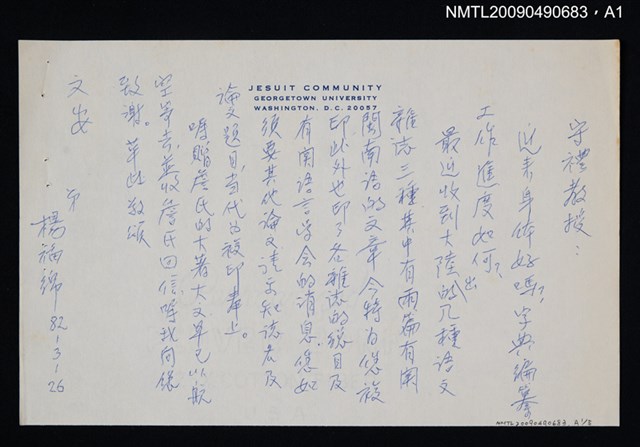 NMTL20090490683，A1
JESUIT COMMUNITY
GEORGETOWN UNIVERSITY
WASHINGTON, D.C. 20057
守禮教授：
近來身体好嗎？字典編纂
工作進度如何？
最近收到大陸出的几種語文
雜誌三種其中有兩篇有関
閩南語的文章今特为您複
印此外也印了各雜誌的総目及
有関语言学会的消息。您如
须要其他論文请示知該表及
論文題目，当代为複印奉上。
嘱贈詹氏的大著大文早已以航
空寄去，兹收詹氏回信嘱我向您
致谢。草此敬颂
文安
弟
楊福綿 82-3-26
NMTL20090490683, A1/3